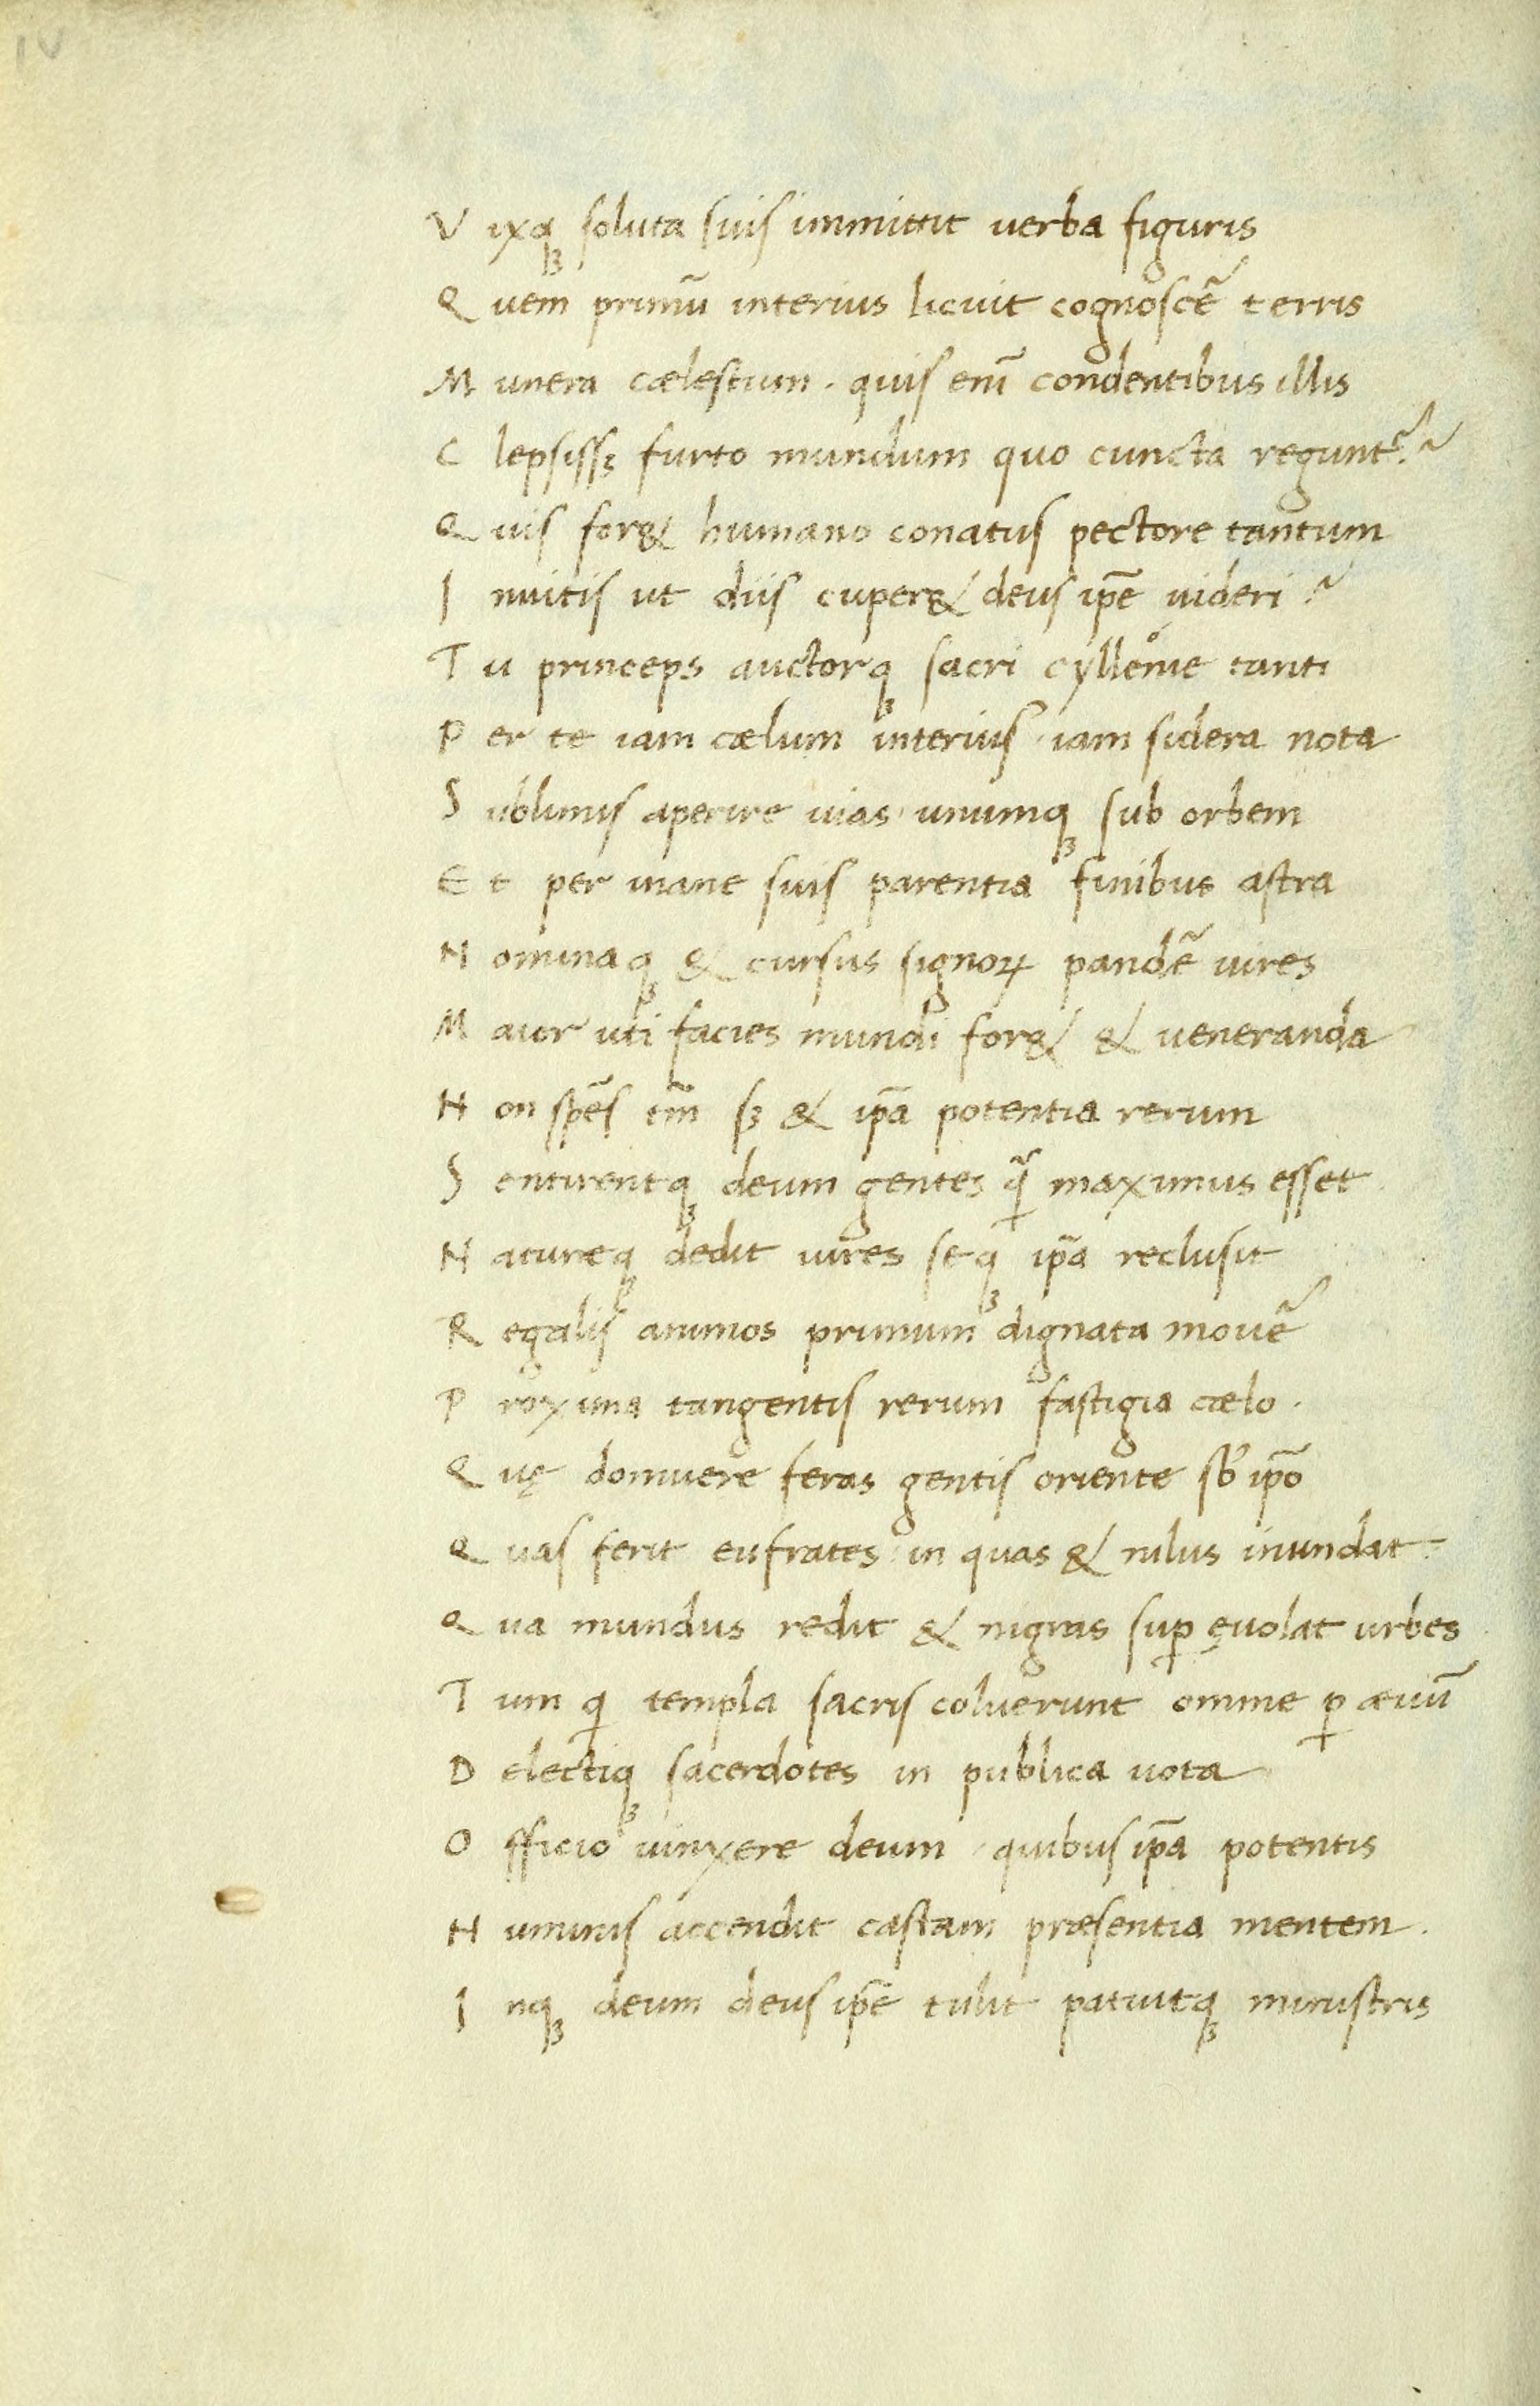 1v
V ixqꝫ soluta suis immittit uerba figuris
Q uem primũ interius licuit cognoscẽ terris
M unera cælestium · quis enĩ condentibus illis
C lepsissꝫ furto mundum quo cuncta regunt᷑ ?
Q uis for& humano conatus pectore tantum
I nuitis ut diis cuper& deus ip̃e uideri ?
T u princeps auctorqꝫ sacri cylleonie tanti
P er te iam cælum interius · iam sidera nota
S ublimis aperire uias · unumqꝫ sub orbem
E t per inane suis parentia finibus astra
N ominaqꝫ & cursus signoꝝ pandẽ uires
M aior uti facies mundi for& & ueneranda
N on sp̃es tm̃ sꝫ & ip̃a potentia rerum
S entirentqꝫ deum gentes q̃ maximus esset
N atureqꝫ dedit uires seqꝫ ip̃a reclusit
R egalis animos primum dignata mouẽ
P roxima tangentis rerum fastigia cælo ·
Q uę domuere feras gentis oriente sb̃ ip̃o
Q uas ferit eufrates · in quas & nilus inundat ·
Q ua mundus redit & nigras suꝑ ęuolat urbes
T um qi templa sacris coluerunt omine ꝑ æuũ
D electiqꝫ sacerdotes in publica uota
O fficio uinxere deum · quibus ip̃a potentis
N uminis accendit castam præsentia mentem ·
I nqꝫ deum deus ip̃e tulit patuitqꝫ ministris